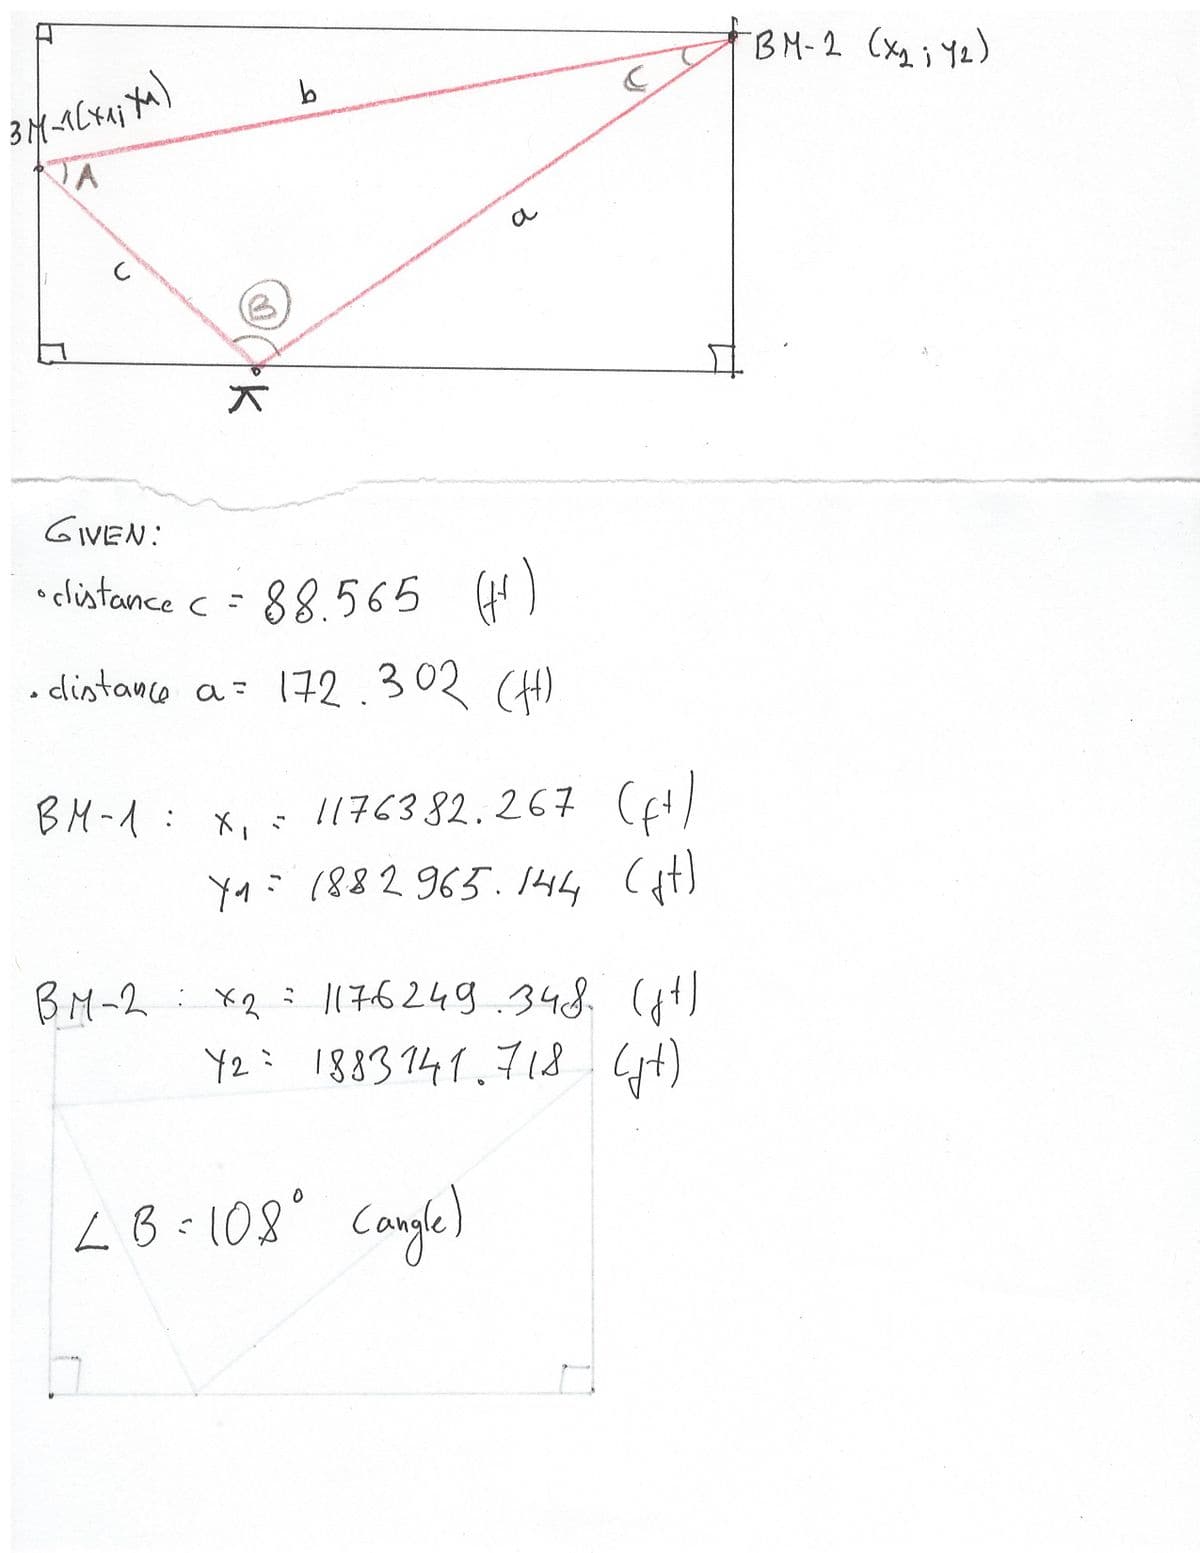 BM-2 (x2 ; y2)
BM-1(x1; y1)
b
C
A
a
c
B
GIVEN:
• distance c = 88.565 (ft)
• distance a = 172.302 (ft)
BM-1 : x1 = 1176382.267 (ft)
y1 = 1882965.144 (ft)
BM-2 : x2 = 1176249.348 (ft)
y2 = 1883141.718 (ft)
∠ B = 108° (angle)